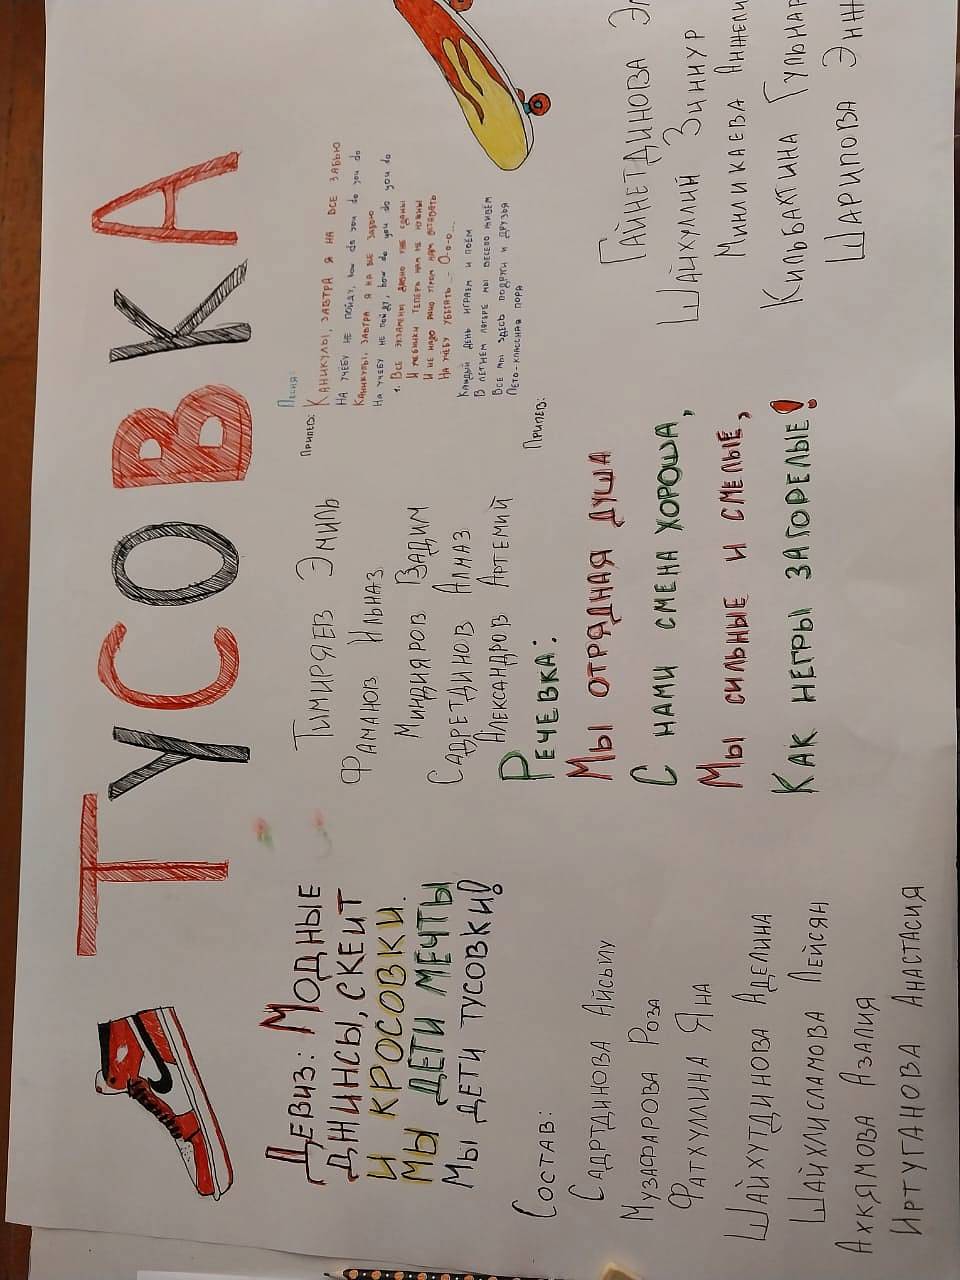 ТУСОВКА
Девиз: Модные
джинсы, скейт
и кросовки.
Мы дети мечты
Мы дети тусовки!
Состав:
Садртдинова Айсылу
Музафарова Роза
Фатхуллина Яна
Шайхутдинова Аделина
Шайхлисламова Лейсян
Ахкямова Азалия
Иртуганова Анастасия
Тимиряев Эмиль
Фаманов Ильназ
Миндияров Вадим
Садретдинов Алмаз
Александров Артемий
Речевка:
Мы отрядная душа
С нами смена хороша,
Мы сильные и смелые,
Как негры загорелые!
Песня:
Припев: Каникулы, завтра я на все забью
На учёбу не пойду, how do you do
Каникулы, завтра я на все забью
На учёбу не пойду, how do you do you do
1. Все экзамены давно уже сданы
И учебники теперь нам не нужны
И не надо рано утром нам вставать
На учёбу убегать... О-о-о...
Каждый день играем и поём
В летнем лагере мы весело живём
Все мы здесь подруги и друзья
Лето-классная пора
Припев:
Гайнетдинова
Шайхулин Зиннур
Миниликаева
Кильбахтина
Шарипова